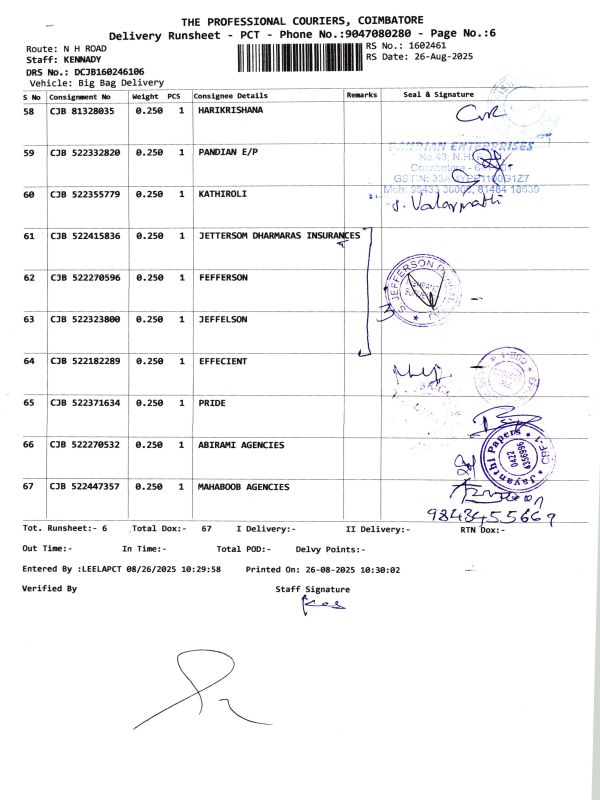 THE PROFESSIONAL COURIERS, COIMBATORE
Delivery Runsheet - PCT - Phone No.:9047080280 - Page No.:6
Route: N H ROAD
RS No.: 1602461
Staff: KENNADY
RS Date: 26-Aug-2025
DRS No.: DCJB160246106
Vehicle: Big Bag Delivery
S No Consignment No Weight PCS Consignee Details Remarks Seal & Signature
58 CJB 81328035 0.250 1 HARIKRISHANA
59 CJB 522332820 0.250 1 PANDIAN E/P
PANDIAN ENTERPRISES
60 CJB 522355779 0.250 1 KATHIROLI
S. Valarmathi
61 CJB 522415836 0.250 1 JETTERSOM DHARMARAS INSURANCES
62 CJB 522270596 0.250 1 FEFFERSON
63 CJB 522323800 0.250 1 JEFFELSON
3
64 CJB 522182289 0.250 1 EFFECIENT
65 CJB 522371634 0.250 1 PRIDE
66 CJB 522270532 0.250 1 ABIRAMI AGENCIES
Jayanthi Papers
CBE-1
0422
67 CJB 522447357 0.250 1 MAHABOOB AGENCIES
9843455669
Tot. Runsheet:- 6 Total Dox:- 67 I Delivery:- II Delivery:- RTN Dox:-
Out Time:- In Time:- Total POD:- Delvy Points:-
Entered By :LEELAPCT 08/26/2025 10:29:58 Printed On: 26-08-2025 10:30:02
Verified By Staff Signature